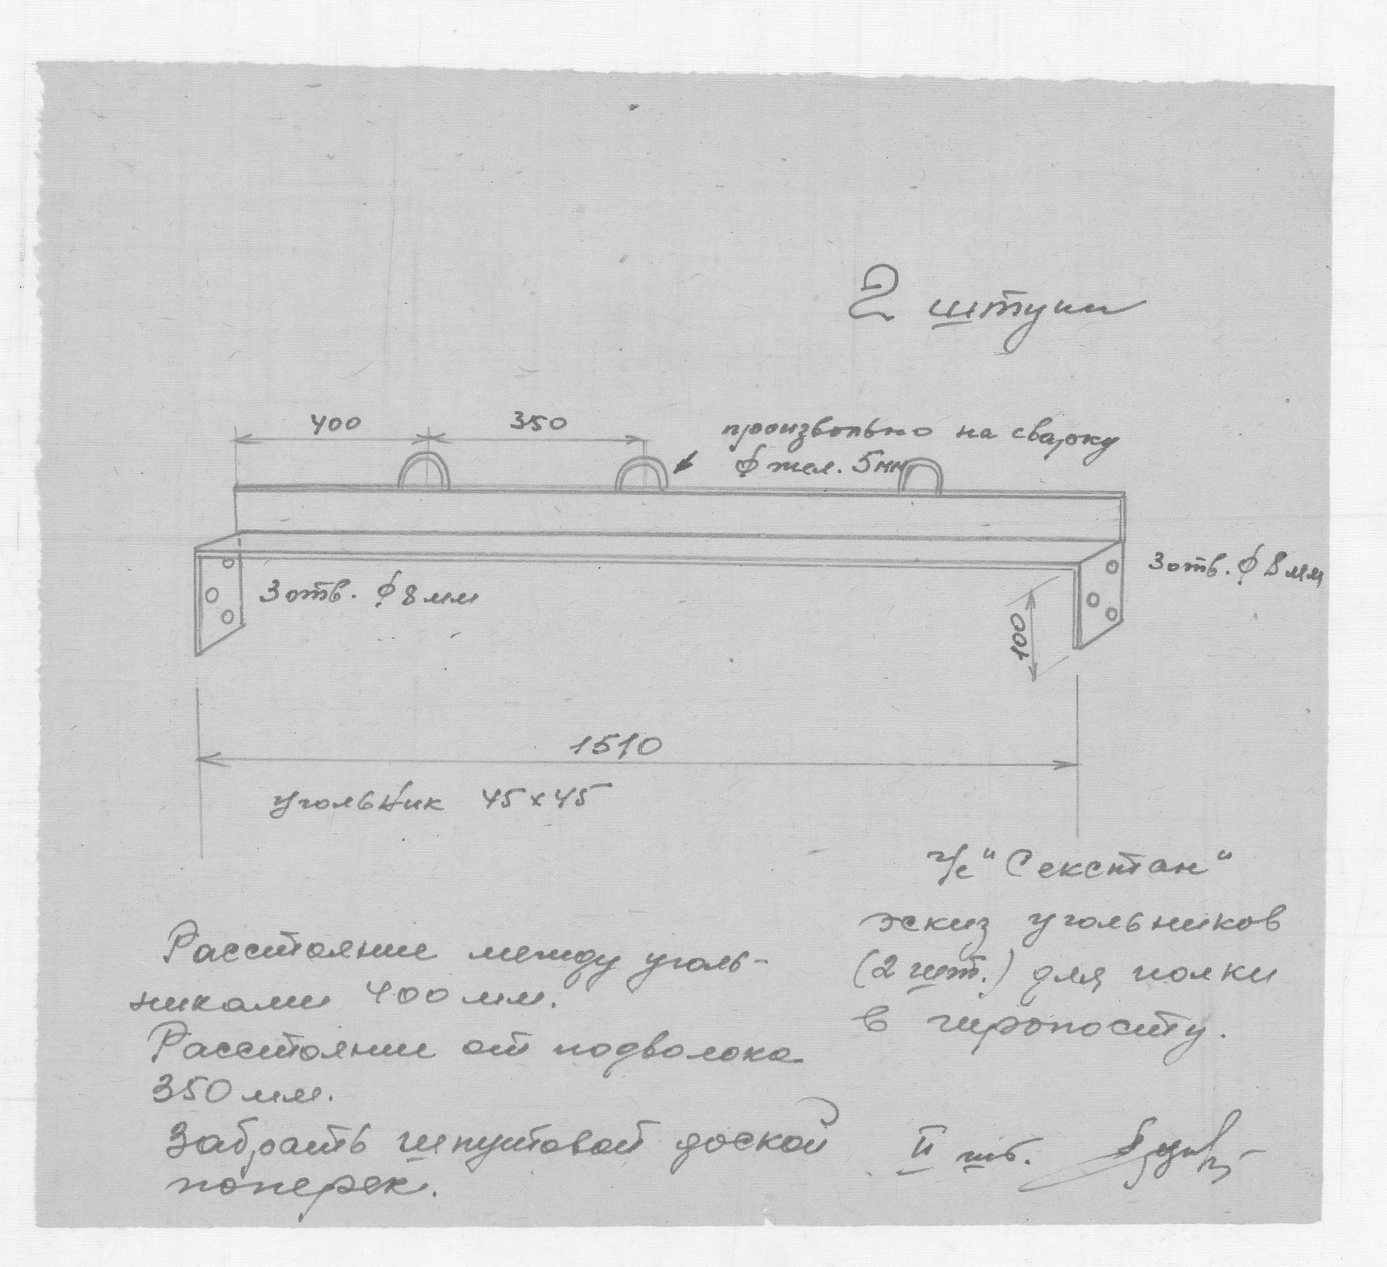 2 штуки
400
350
произвольно на сварку
ф жел. 5мм
3 отв. ф 8 мм
3 отв. ф 8 мм
100
1510
угольник 45х45
"Секстан"
эскиз угольников
(2 шт.) для полки
в гиропосту.
Расстояние между уголь-
никами 400 мм.
Расстояние от подволока
350 мм.
Забрать шпунтовой доской
поперек.
II шб.